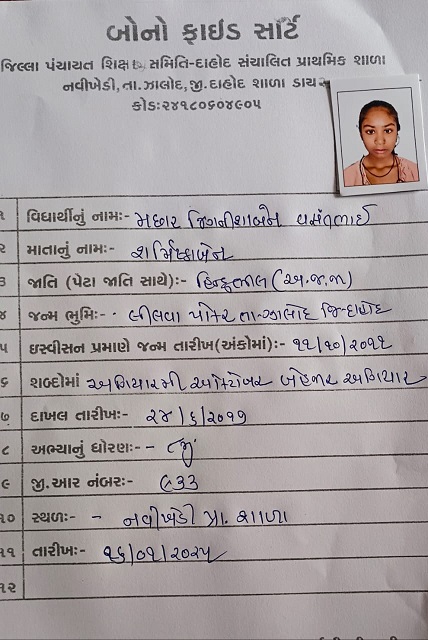 બોનો ફાઈડ સર્ટિ
જિલ્લા પંચાયત શિક્ષણ સમિતિ-દાહોદ સંચાલિત પ્રાથમિક શાળા
નવીખેડી,તા.ઝાલોદ,જી.દાહોદ શાળા ડાયસ
કોડ:૨૪૧૮૦૬૦૪૯૦૫
૧ વિદ્યાર્થીનું નામઃ- મછાર જિગનીશાબેન વસંતભાઈ
૨ માતાનું નામઃ- શર્મિષ્ઠાબેન
૩ જાતિ (પેટા જાતિ સાથે)ઃ- હિન્દુ ભીલ (અ.જ.જા)
૪ જન્મ ભુમિઃ- લીલવા પોકર તા-ઝાલોદ જિ-દાહોદ
૫ ઇસ્વીસન પ્રમાણે જન્મ તારીખ(અંકોમાં)ઃ- ૧૧/૧૦/૨૦૧૧
૬ શબ્દોમાં અગિયારમી ઓક્ટોબર બેહજાર અગિયાર
૭ દાખલ તારીખઃ- ૨૪/૬/૨૦૧૭
૮ અભ્યાનું ધોરણઃ- - ૮મું
૯ જી.આર નંબરઃ- ૯૩૩
૧૦ સ્થળઃ- - નવીખેડી પ્રા. શાળા
૧૧ તારીખઃ- ૧૬/૦૧/૨૦૨૫
૧૨